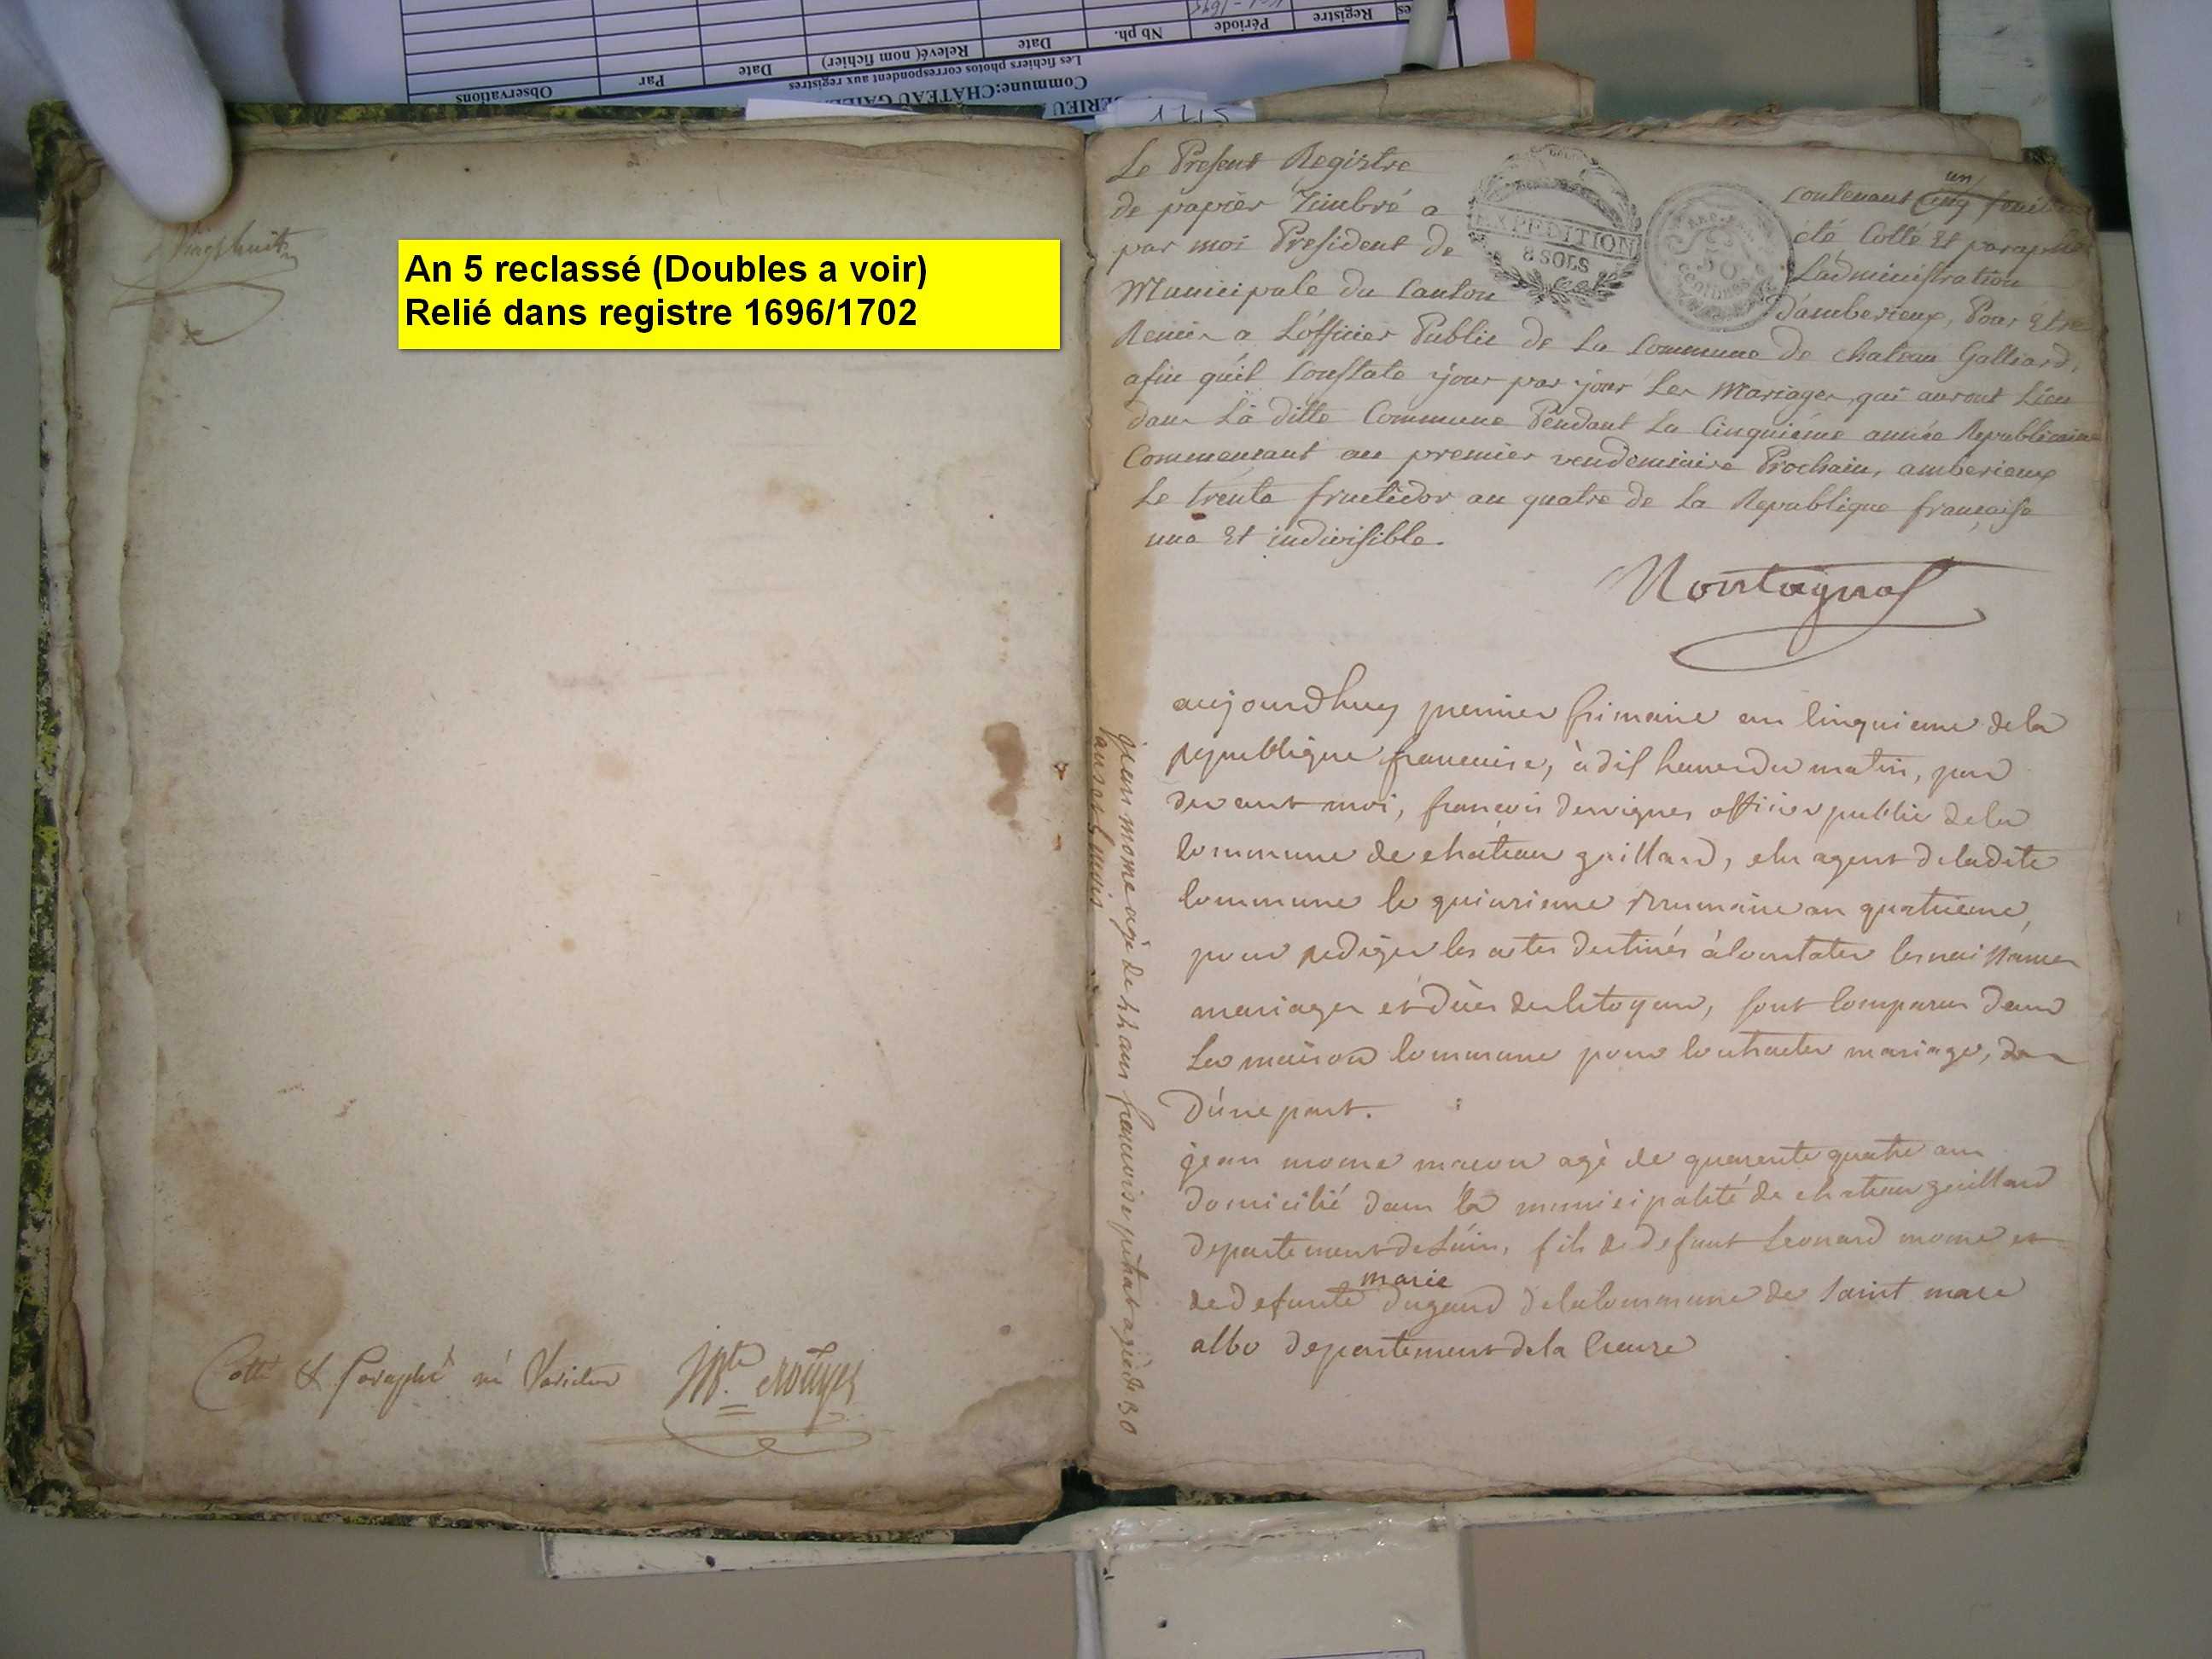 Observations
Par
Date
Relevé( nom fichier)
Date
Nb ph.
Période
Registre
Les fichiers photos correspondent aux registres
Commune:CHÂTEAU GAILL
BERIEU
1715
Vingt huit
An 5 reclassé (Doubles a voir)
Relié dans registre 1696/1702
Cotté & Paraphé ne Varietur
Le Present Registre contenant un feuil
de papier Timbré a été Cotté Et paraphé
par moi President de Ladministration
Municipale du Canton D'amberieux, Pour Etre
Remis a L'officier Public de La Commune de chateau Galliard,
afin qu'il Constate jour par jour Les Mariages, qui auront Lieu
dans La ditte Commune Pendant La Cinquiéme année Republicaine
Commencant au premier vendemiaire Prochain, amberieux
Le trente fructidor an quatre de La Republique francaise
une Et indivisible.
EXPEDITION
8 SOLS
50
centimes
Montagnat
aujourdhuy premier frimaire an Cinquieme de la
republique francaise, à dix heures du matin, par
devant moi, francois desvignes officier public de la
Commune de château gaillard, elu agent de ladite
Commune le quinzieme brumaire an quatrieme,
pour rediger les actes destinés à Constater les naissances
mariages et décès des Citoyens, sont Comparus dans
La maison Commune pour Contracter mariage,
D'une part.
jean mome macon agé de quarente quatre ans
domicilié dans la municipalité de chateau gaillard
departement de L'ain, fils de defunt Leonard mome et
de defunte marie dugand de la Commune de saint marc
albo departement de la Creuse
jean mome agé de 44 ans francoise pitrat agée de 30
ans et demis